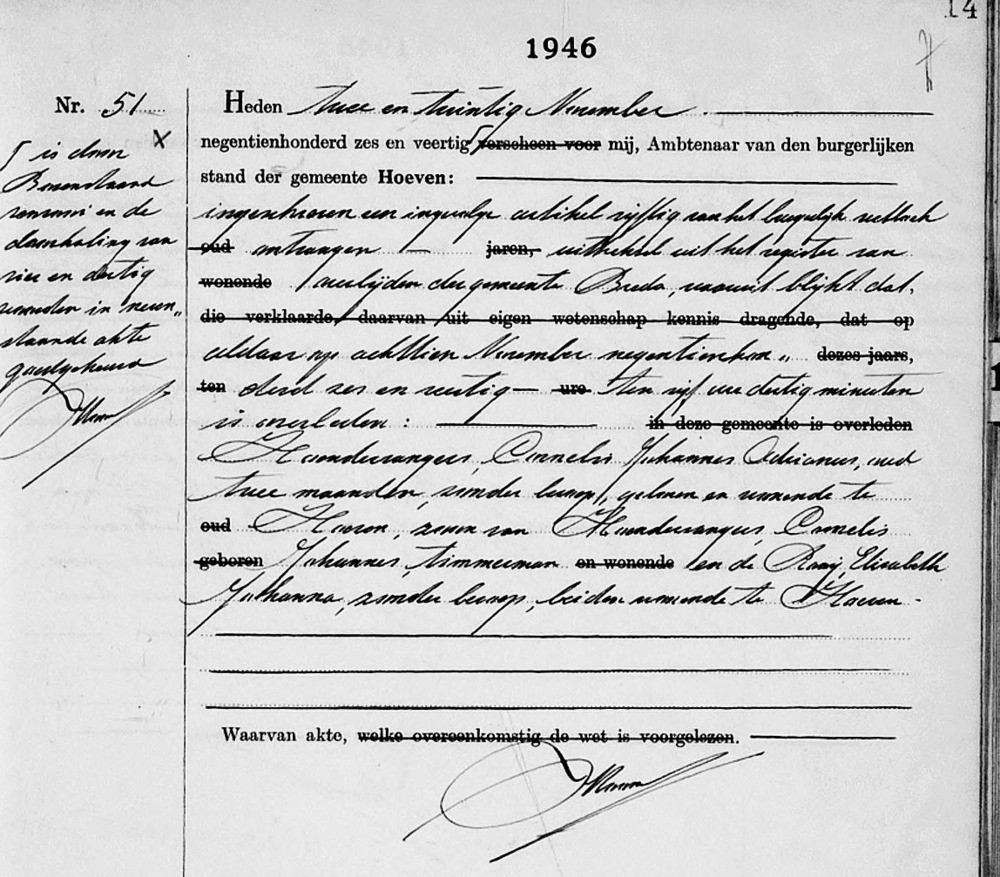 14
1946
Nr. 51
Heden twee en twintig November
negentienhonderd zes en veertig ⌈ verscheen voor mij, Ambtenaar van den burgerlijken
stand der gemeente Hoeven:
ingeschreven een ingevolge artikel vijftig van het burgerlijk wetboek
oud ontvangen — jaren, uittreksel uit het register van
wonende overlijden der gemeente Breda, waaruit blijkt dat,
die verklaarde, daarvan uit eigen wetenschap kennis dragende, dat op
aldaar op achttien November negentienhon„ dezes jaars,
ten derd zes en veertig — ure ten vijf ure dertig minuten
is overleden: in deze gemeente is overleden
Cornelis Johannes Adrianus, oud
twee maanden, zonder beroep, geboren en wonende te
oud Hoeven, zoon van Cornelis
geboren Johannes, timmerman en wonende en de Raaij, Elisabeth
Johanna, zonder beroep, beiden wonende te Hoeven.
Waarvan akte, welke overeenkomstig de wet is voorgelezen.
⌈ is door X
Bovenstaand
renvooi en de
doorhaling van
vier en dertig
woorden in neven„
staande akte
goedgekeurd